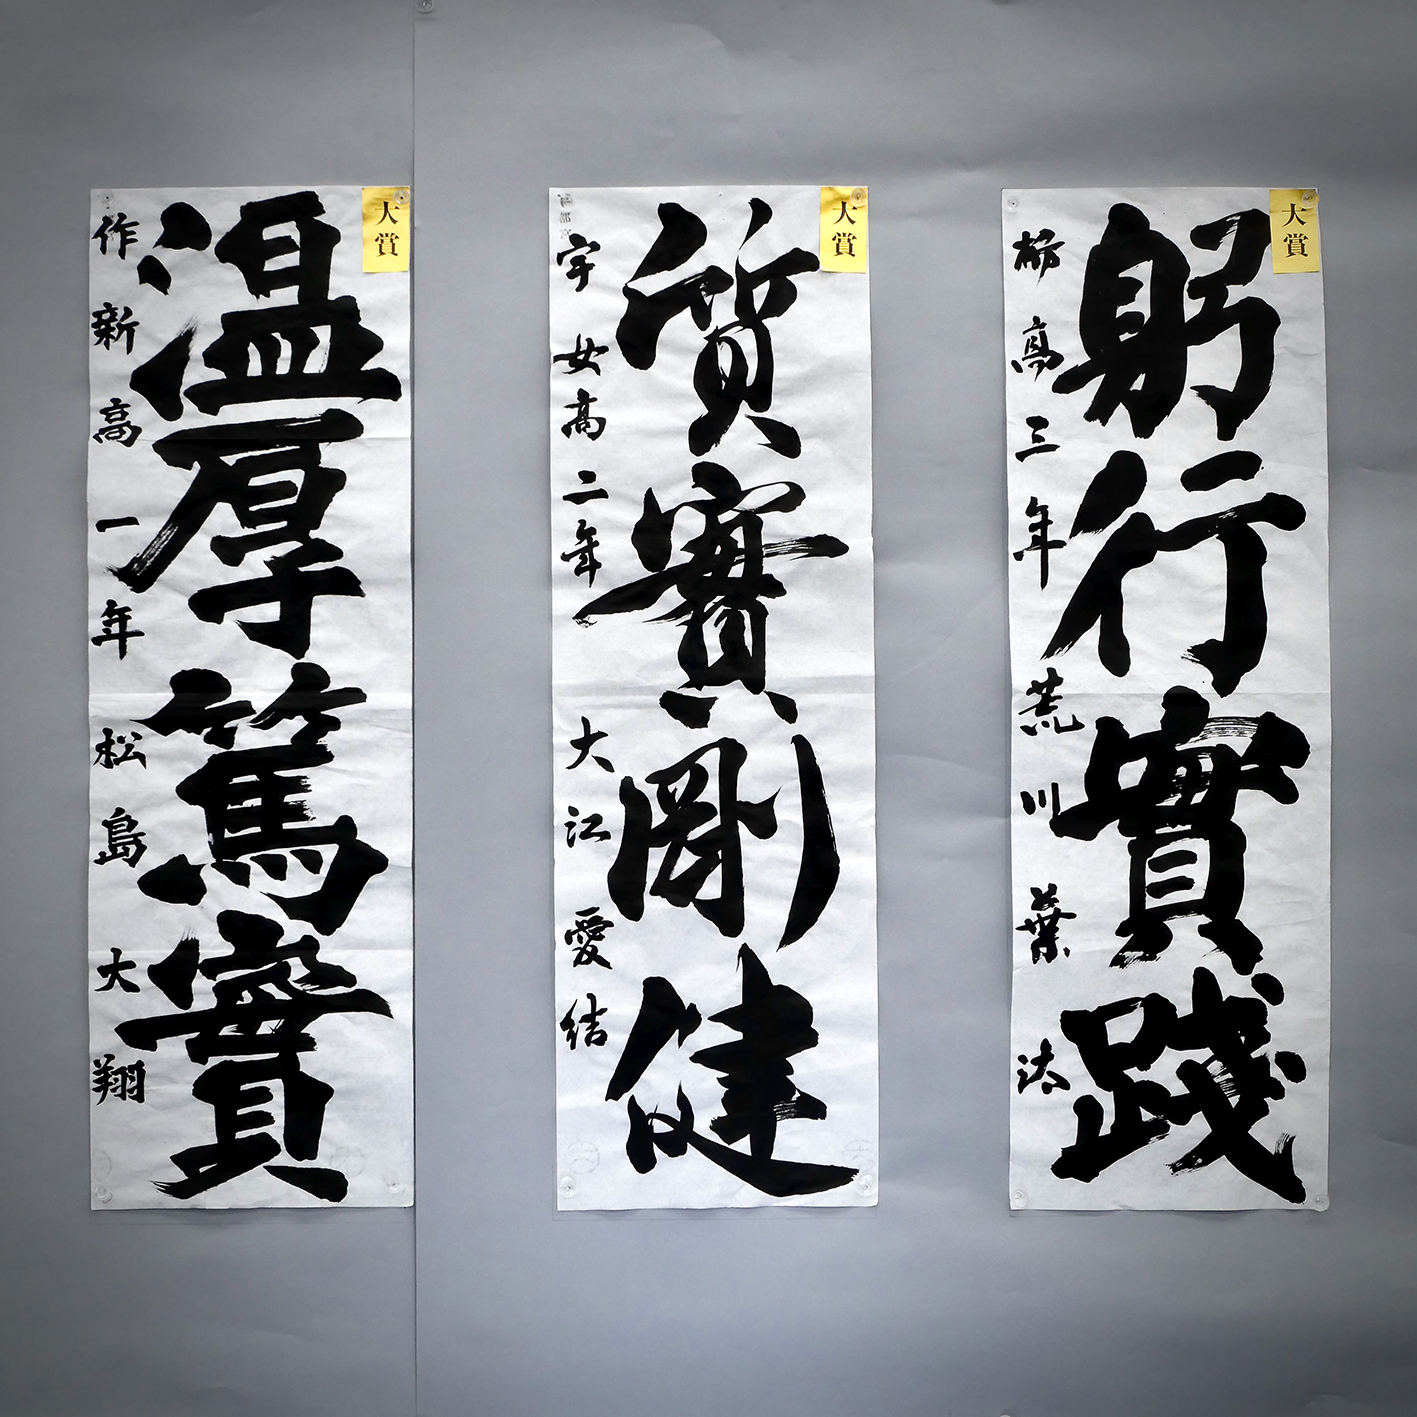 大賞
躬行實踐
栃高三年 荒川葉汰
大賞
質實剛健
宇女高二年 大江愛結
大賞
温厚篤實
作新高一年 松島大翔